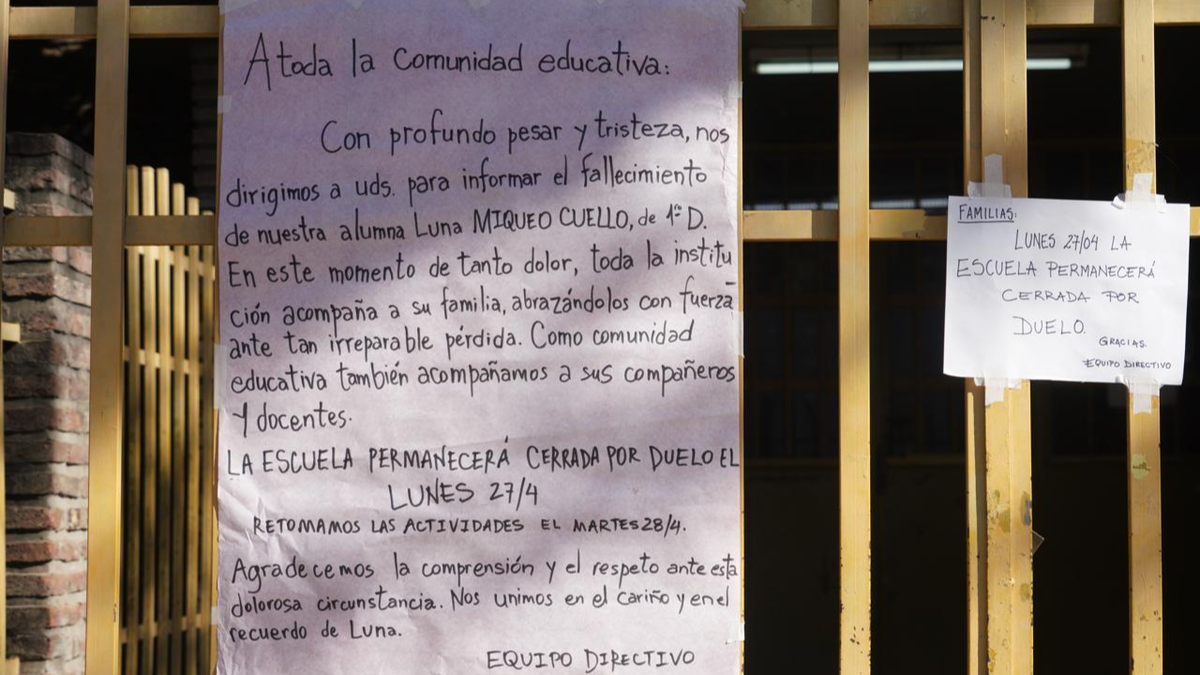 A toda la Comunidad educativa:
Con profundo pesar y tristeza, nos
dirigimos a uds. para informar el fallecimiento
de nuestra alumna Luna MIQUEO CUELLO, de 1º D.
En este momento de tanto dolor, toda la institu
ción acompaña a su familia, abrazándolos con fuerza
ante tan irreparable pérdida. Como comunidad
educativa también acompañamos a sus compañeros
y docentes.
LA ESCUELA PERMANECERÁ CERRADA POR DUELO EL
LUNES 27/4
RETOMAMOS LAS ACTIVIDADES EL MARTES 28/4.
Agradecemos la comprensión y el respeto ante esta
dolorosa circunstancia. Nos unimos en el cariño y en el
recuerdo de Luna.
EQUIPO DIRECTIVO
FAMILIAS:
LUNES 27/04 LA
ESCUELA PERMANECERÁ
CERRADA POR
DUELO.
GRACIAS.
EQUIPO DIRECTIVO